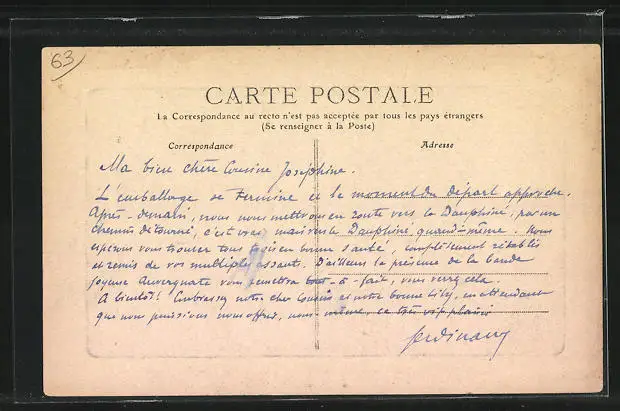 63
CARTE POSTALE
La Correspondance au recto n'est pas acceptée par tous les pays étrangers
(Se renseigner à la Poste)
Correspondance
Adresse
Ma bien chère Cousine Joséphine.
L'emballage se termine et le moment du départ approche.
Après-demain, nous nous mettrons en route vers le Dauphiné, par un
chemin détourné, c'est vrai, mais vers le Dauphiné, quand-même. Nous
espérons vous trouver tous en bonne santé, complètement rétablis
et remis de vos multiples assauts. D'ailleurs la présence de la bande
joyeuse Auvergnate vous remettra tout-à-fait, vous verrez cela.
A bientôt! Embrassez notre cher Cousin et notre bonne Lily, en attendant
que nous puissions nous offrir, nous-même, ce très vif plaisir
Ferdinand